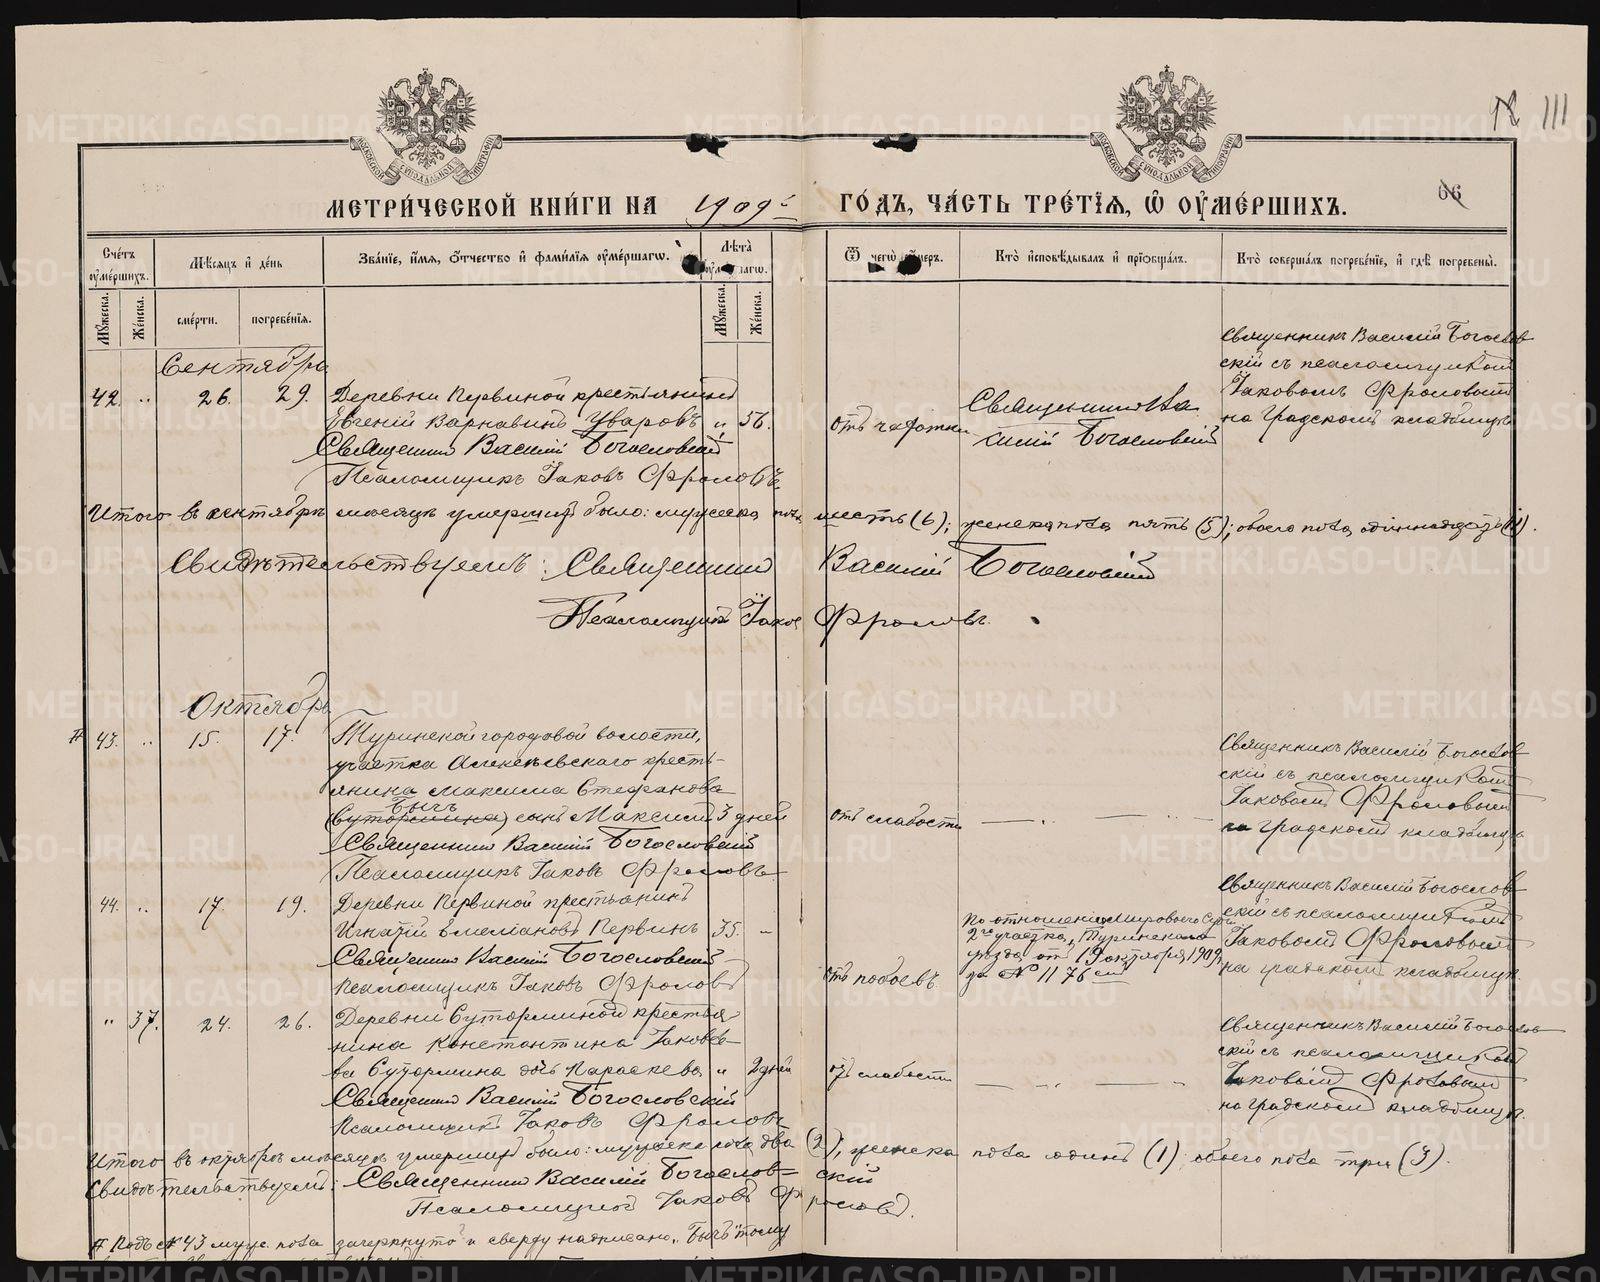 МЕТРИ́ЧЕСКОЙ КНИ́ГИ НА 1909й ГО́ДЪ, ЧА́СТЬ ТРЕ́ТІѦ, Ѡ ОУМЕ́РШИХЪ.
111
66
Сче́тъ оумéршихъ.
Мѣ́сяцъ и де́нь
Зва́ніе, и́мя, о́тчество и фами́лія оумéршагѡ.
Лѣ́та оумéршагѡ.
Ѿ чегѡ̀ оу́меръ.
Кто̀ исповѣ́дывалъ и прiобща́лъ.
Кто̀ соверша́лъ погребе́ніе, и гдѣ̀ погребены̀.
Мꙋ́жеска.
Же́нска.
сме́рти.
погребе́нія.
Мꙋ́жеска.
Же́нска.
Сентябрь
42. „ 26. 29. Деревни Первиной крестьянинъ
Евгеній Варнавинъ Уваровъ „ 56.
Священникъ Василій Богословскій
Псаломщикъ Іаковъ Фроловъ.
отъ чахотки
Священникъ Ва
силій Богословскій
Священникъ Василій Богослов
скій съ псаломщикомъ
Іаковомъ Фроловымъ
на градскомъ кладбищѣ
Итого въ сентябрѣ мѣсяцѣ умершихъ было: мужеска пола шесть (6); женска пола пять (5); обоего пола одиннадцать (11).
Свидѣтельствуемъ: Священникъ Василій Богословскій
Псаломщикъ Іаковъ Фроловъ.
Октябрь
# 43. „ 15. 17. Туринской городовой волости,
участка Алексѣевскаго кресть-
янина Максима Стефанова
Бычъ
(Сутормина) сынъ Максимъ 3 дней
Священникъ Василій Богословскій
Псаломщикъ Іаковъ Фроловъ
отъ слабости
Священникъ Василій Богослов
скій съ псаломщикомъ
Іаковомъ Фроловымъ
на градскомъ кладбищѣ
44. „ 17. 19. Деревни Первиной крестьянинъ
Игнатій Емельяновъ Первинъ 35. „
Священникъ Василій Богословскій
Псаломщикъ Іаковъ Фроловъ
отъ побоевъ.
По отношенію Мирового Судьи
2го участка, Туринскаго
уѣзда отъ 19 октября 1909 г.
за № 1176 мъ
Священникъ Василій Богослов
скій съ псаломщикомъ
Іаковомъ Фроловымъ
на градскомъ кладбищѣ.
„ 37. 24. 26. Деревни Суторминой крестья-
нина Константина Іаковле-
ва Сутормина дочь Параскева „ 2 дней
Священникъ Василій Богословскій
Псаломщикъ Іаковъ Фроловъ
отъ слабости
Священникъ Василій Богослов
скій съ псаломщикомъ
Іаковомъ Фроловымъ
на градскомъ кладбищѣ.
Итого въ октябрѣ мѣсяцѣ умершихъ было: мужеска пола два (2), женска пола одинъ (1), обоего пола три (3).
Свидѣтельствуемъ: Священникъ Василій Богословскій
Псаломщикъ Іаковъ Фроловъ.
# Подъ № 43 муж. пола зачеркнуто и сверху надписано „Бычъ" тому
METRIKI.GASO-URAL.RU